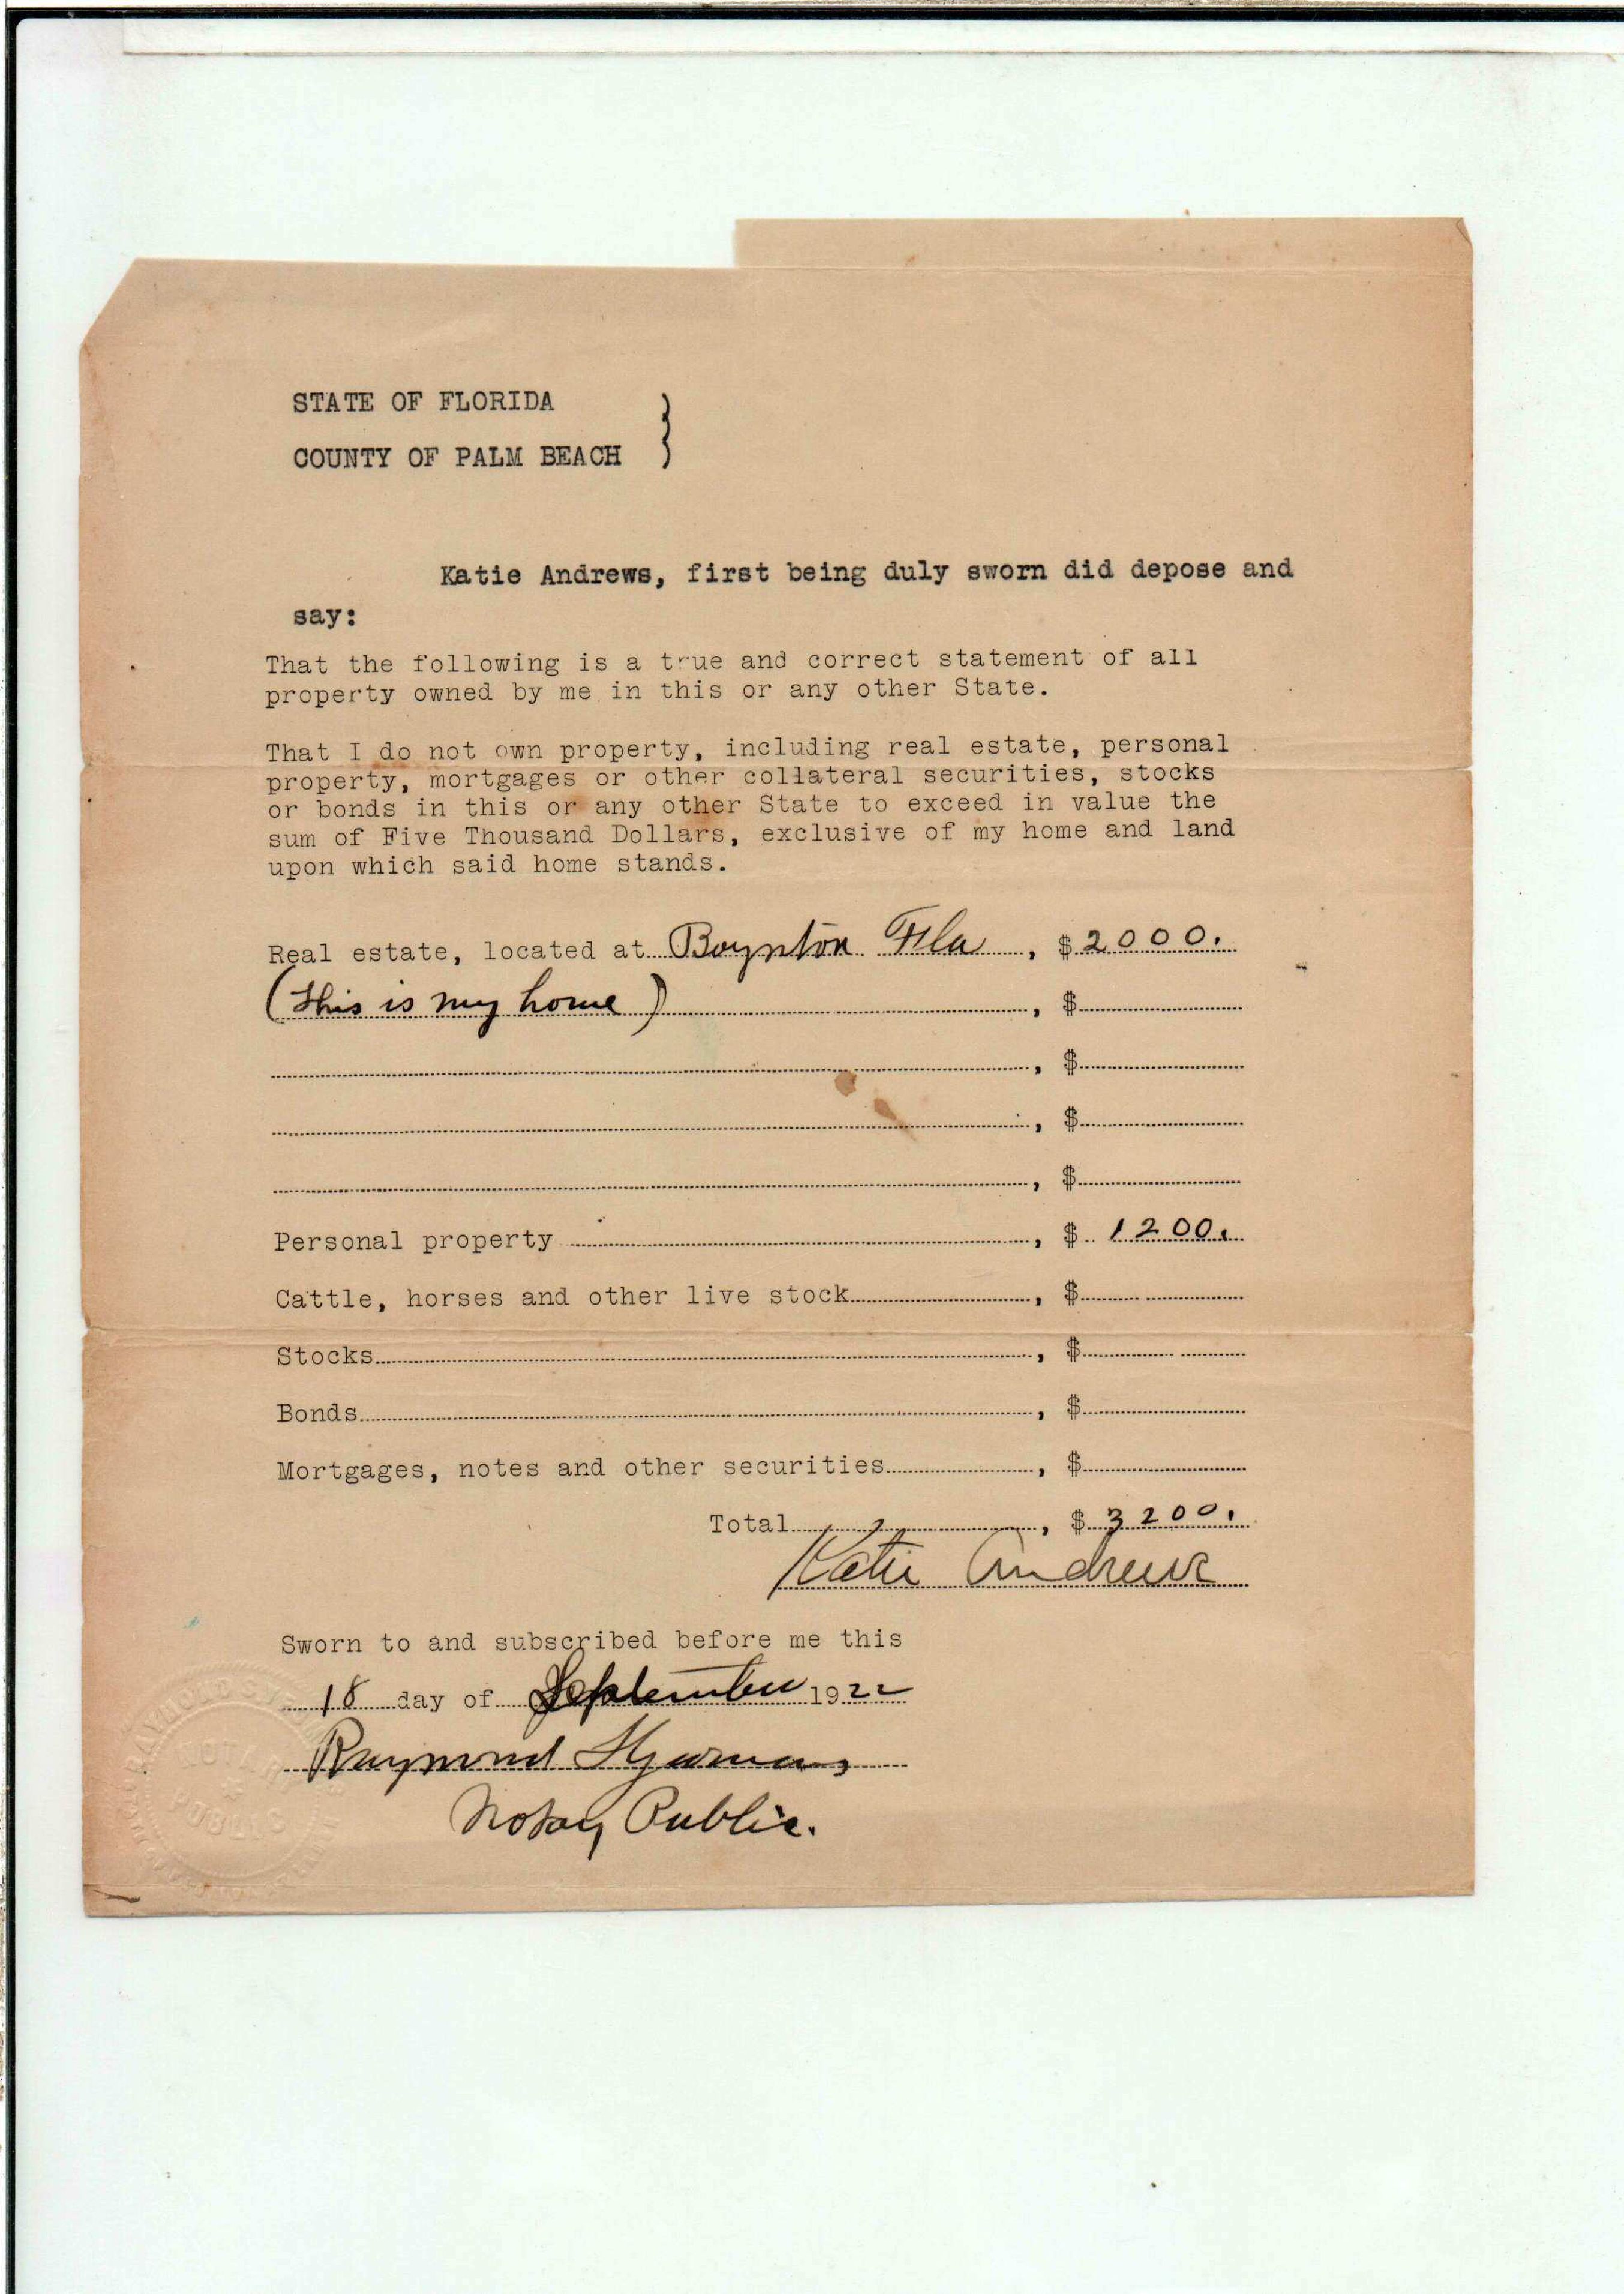 STATE OF FLORIDA
COUNTY OF PALM BEACH }
Katie Andrews, first being duly sworn did depose and
say:
That the following is a true and correct statement of all
property owned by me in this or any other State.
That I do not own property, including real estate, personal
property, mortgages or other collateral securities, stocks
or bonds in this or any other State to exceed in value the
sum of Five Thousand Dollars, exclusive of my home and land
upon which said home stands.
Real estate, located at Boynton Fla , $ 2000.
(This is my home) , $
, $
, $
, $
Personal property , $ 1200.
Cattle, horses and other live stock , $
Stocks , $
Bonds , $
Mortgages, notes and other securities , $
Total , $ 3200.
Katie Andrews
Sworn to and subscribed before me this
18 day of September 1922
Raymond
Notary Public.
RAYMOND
NOTARY
PUBLIC